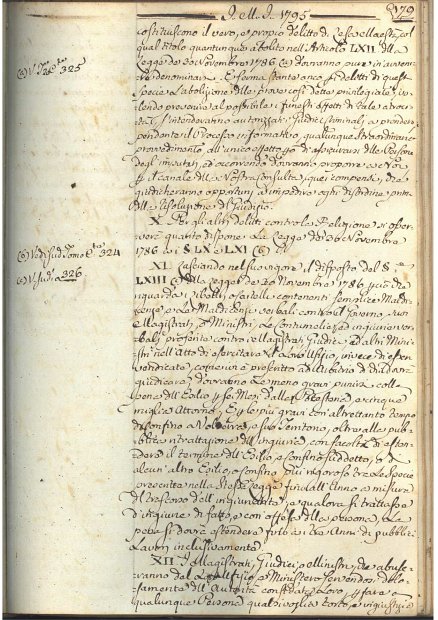 I.M.I. 1795
179
costituiscono il vero, e proprio delitto di Lesa Maestà, col
qual titolo quantunque abolito nell'Articolo LXII della
Legge de 30 Novembre 1786 (a) dovranno pure in avvenire
denominarsi. E ferma stante anco per i delitti di questa
Specie l'abolizione delle prove così dette privilegiate, e
volendo prevenire al possibile i funesti effetti di tale atrocità
, s'intenderanno autorizzati i Giudici Criminali, a prendere
pendente il Processo informativo, qualunque straordinario
provvedimento all'unico effetto di assicurarsi delle Persone
degl'inquisiti, ed occorrendo dovranno proporre a Noi
per il canale della Nostra Consulta, quei compensi, che
giudicheranno opportuni a impedire ogni disordine prima
della Risoluzione del Giudizio.
X. Per gli altri delitti contro la Religione si osserverà
quanto dispone la Legge de 30 Novembre
1786 ai §. LX e LXI (b)
XI. Lasciando nel suo vigore il disposto del §
LXIII della Legge de 30 Novembre 1786 per ciò che
riguarda i libelli, o cartelli contenenti semplice Maldicenza
, e le Maldicenze verbali contro il Governo, suoi
Magistrati, o Ministri, le Contumelie, ed ingiurie verbali
proferite contro i Magistrati, Giudici, ed altri Ministri
nell'Atto di esercitare il loro Ufizio, invece di esser
dovranno le meno gravi punirsi colla
pena dell'Esilio per sei Mesi dalla Potesteria, e cinque
miglia attorno, E le più gravi con altrettanto tempo
di confino a Volterra, e suo Territorio, oltre alla pubblica
ritrattazione dell'ingiuria, con facoltà di estendere
il termine dell'Esilio, e confino suddetto, o di
alcun'altro Esilio, o confino più rigoroso tra le Specie
prescritte nella stessa Legge fino all'Anno a misura
dell'eccesso dell'ingiuria, e qualora si trattasse
d'ingiurie di fatto, e con offesa della persona, la
pena si dovrà estendere fino a tre Anni di pubblici
Lavori inclusivamente.
XII. I Magistrati, Giudici, o Ministri che abuseranno
del loro Ufizio, e Ministero servendosi
dell'Autorità confidata loro, per fare a
qualunque Persona qualsivoglia torto, e ingiustizia
(a) V. 325
(b) Vedi sud. Tomo C. 324
(c) V. Sud. a 326